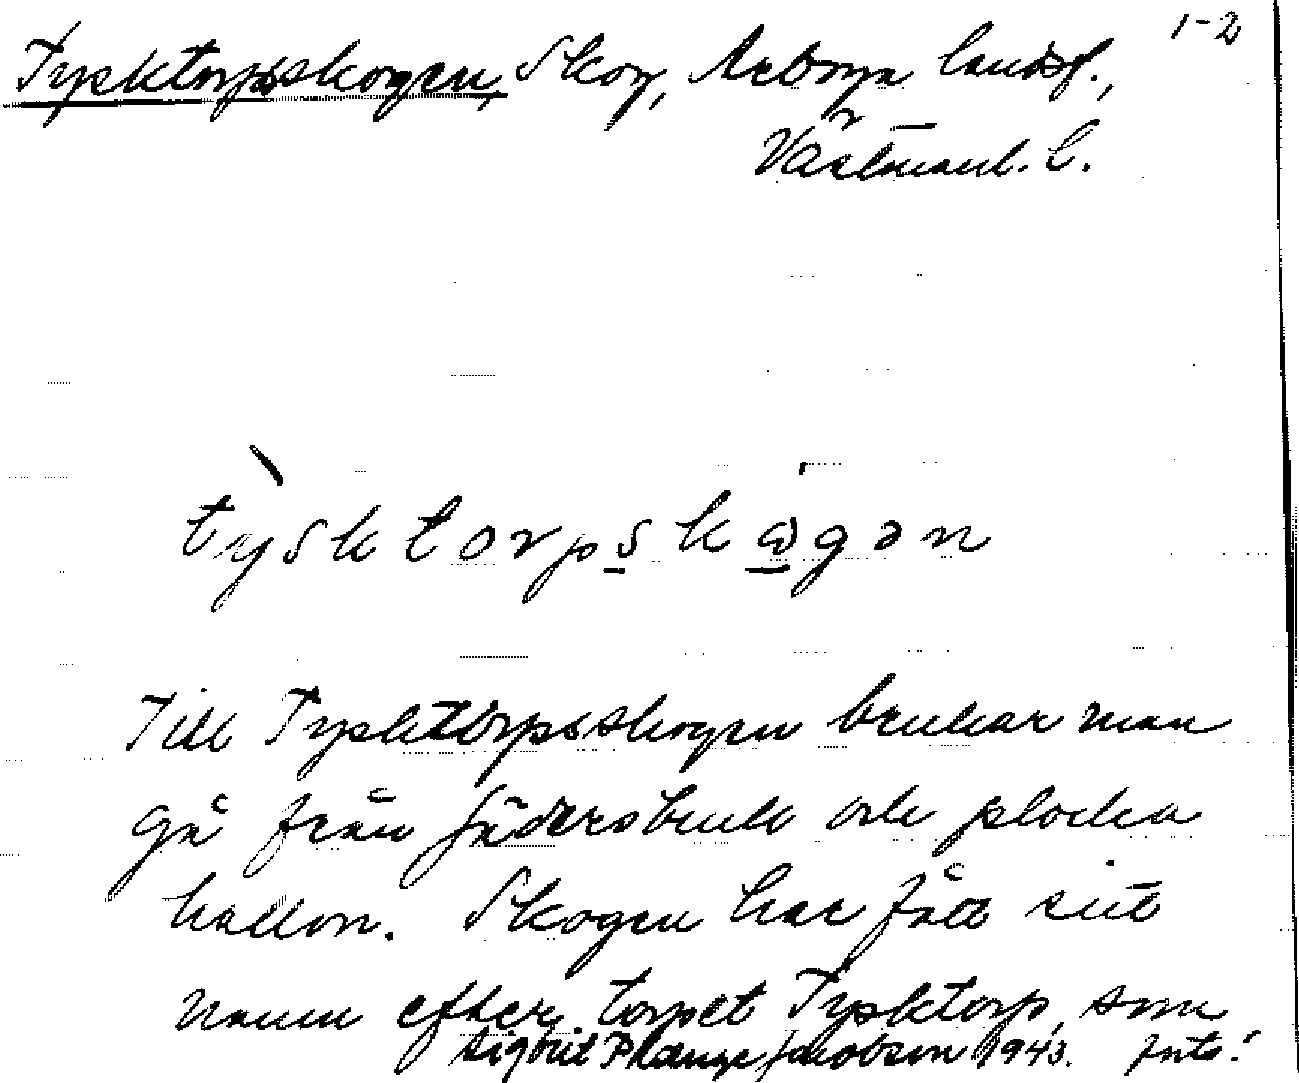 1-2
Tysktorpsskogen, Skog, Arboga landsf.,
Västmanl. l.
tysktorpskωgən
Till Tysktorpsskogen brukar man
gå från Jädersbruk och plocka
hallon. Skogen har fått sitt
namn efter torpet Tysktorp, som
Sigbrit Plænge Jakobson 1943. Forts.!